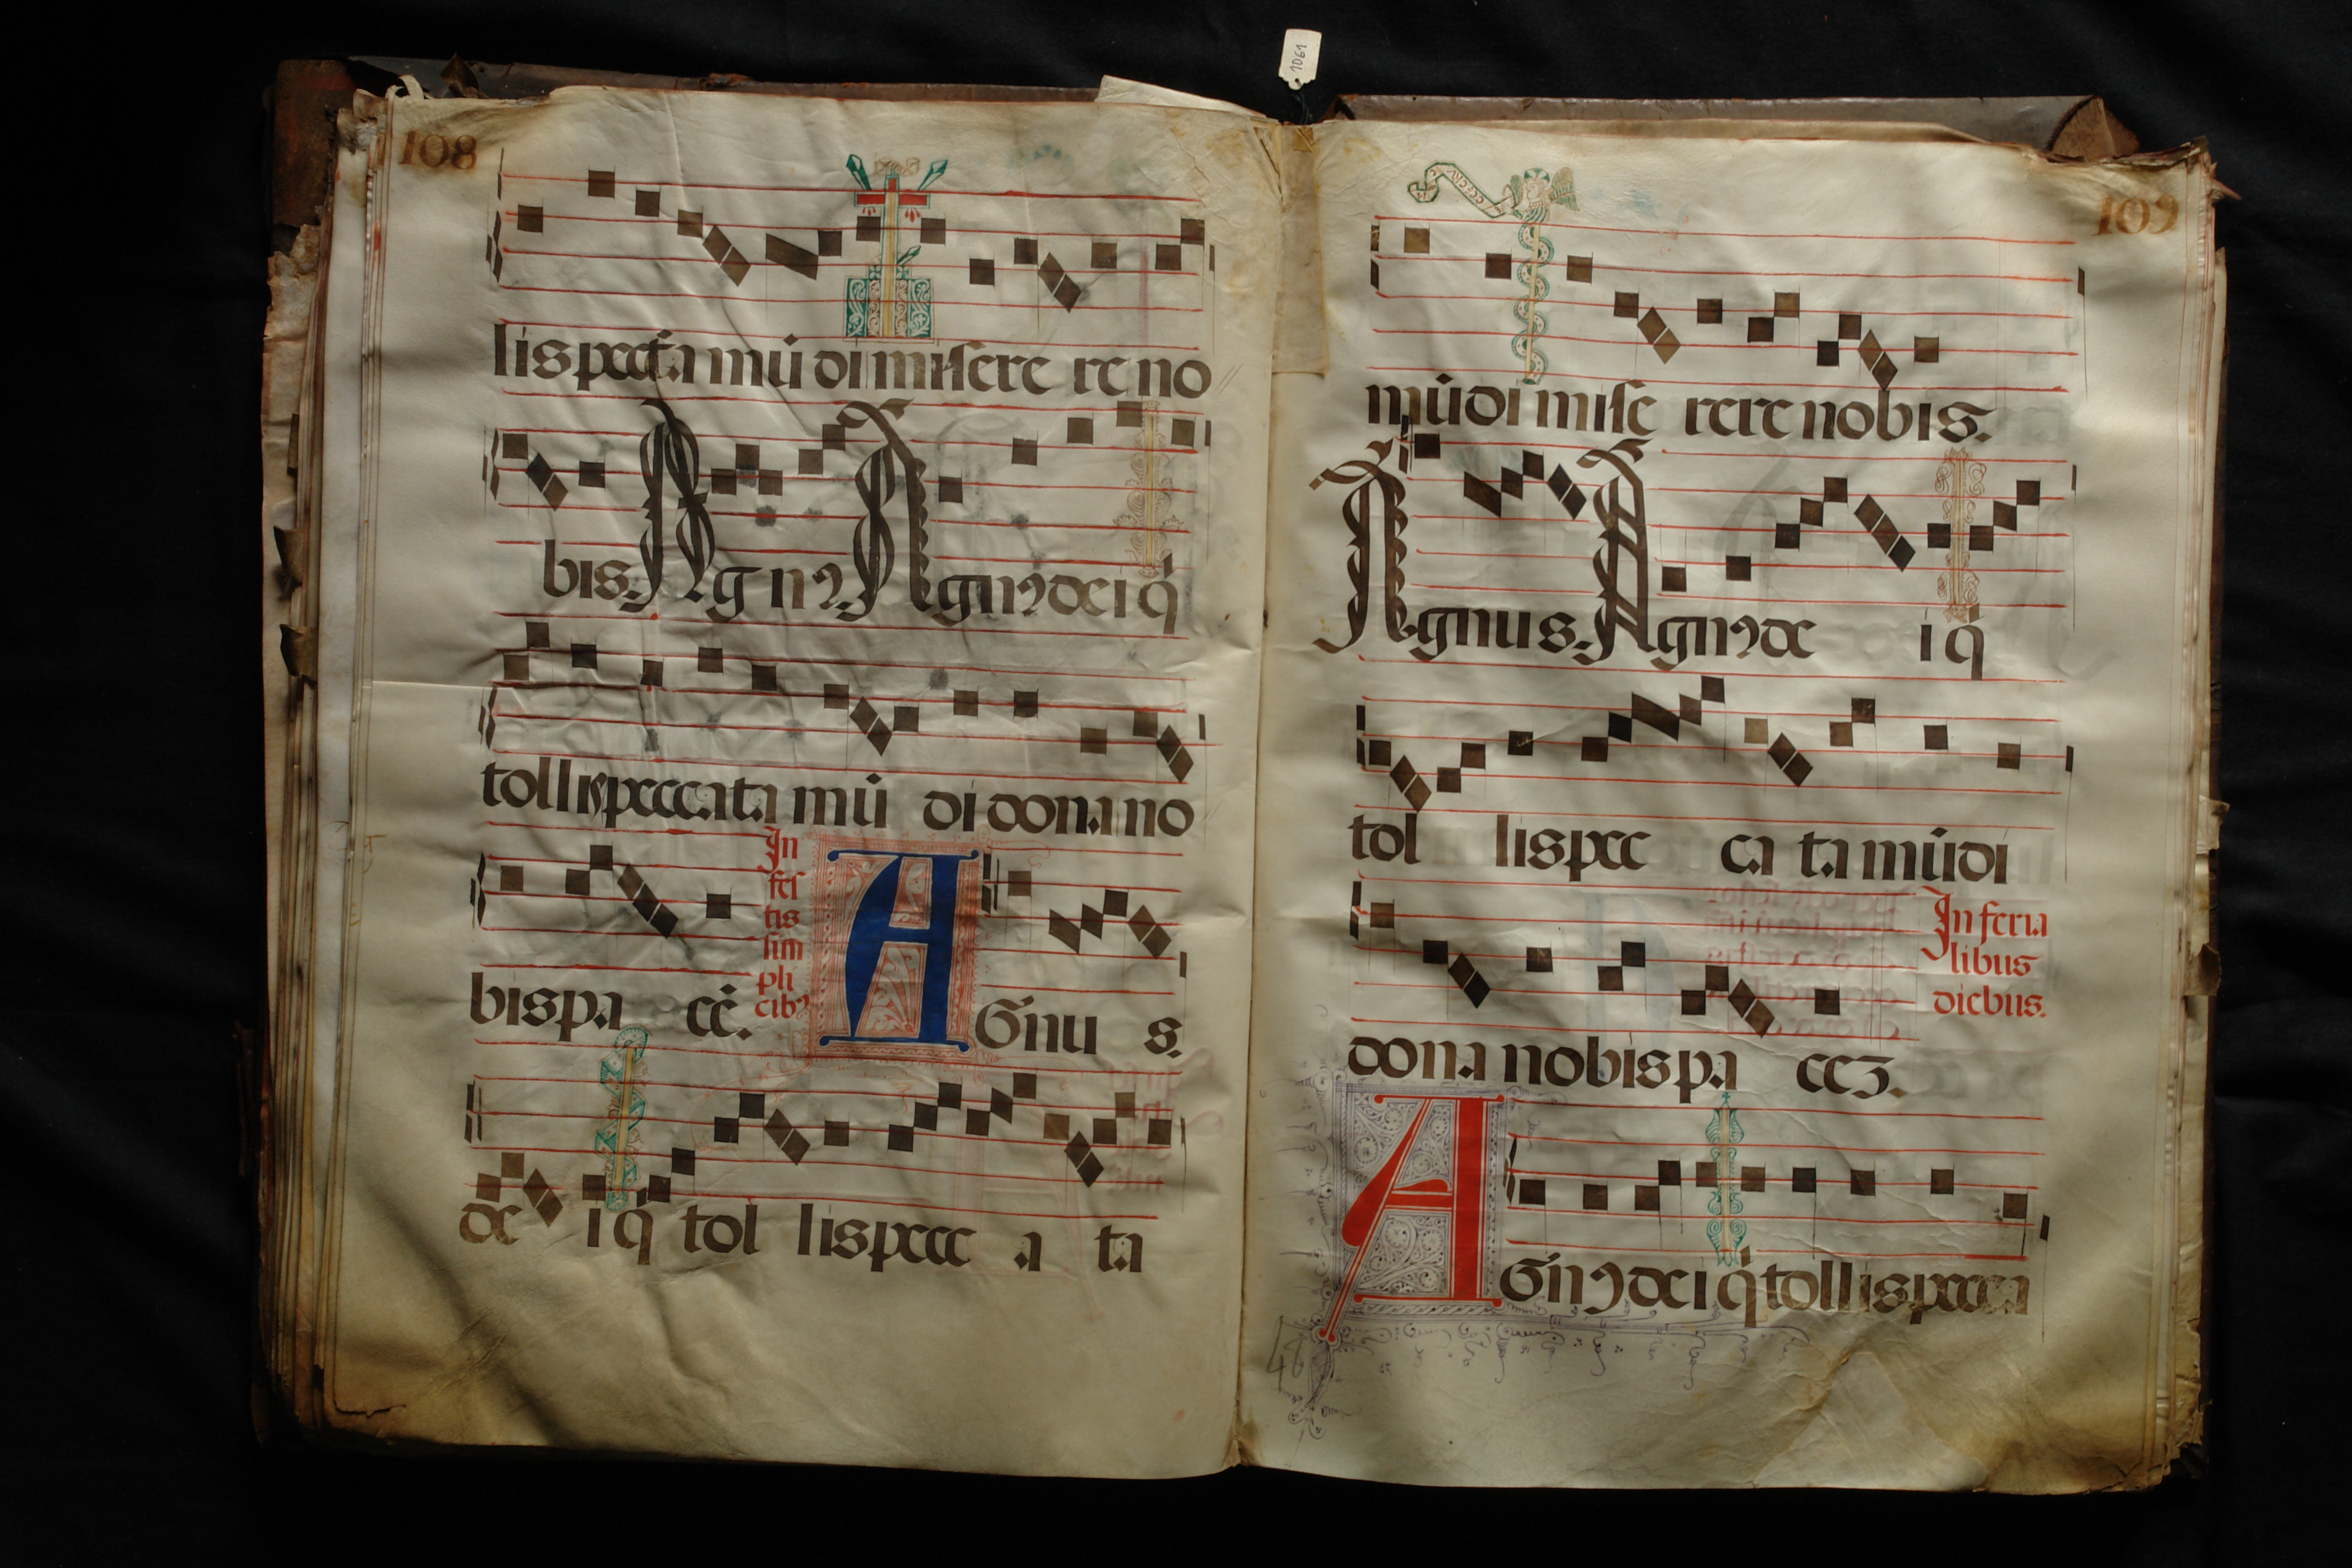 1061
108
lis pecca ta mū di miſere re no
bis. Agnꝰ. Agnꝰ dei q̇
tollis peccata mū di dona no
In
feſ
tis
ſim
pli
cibꝰ
bis pa cē. AGnu s.
de i q̇ tol lis pecc a ta
109
mūdi miſe rere nobis.
Agnus. Agnꝰ de i q̇
tol lis pec ca ta mūdi
In feria
libus
diebus.
dona nobis pa ceꝫ.
AGnꝰ dei q̇ tollis pecca